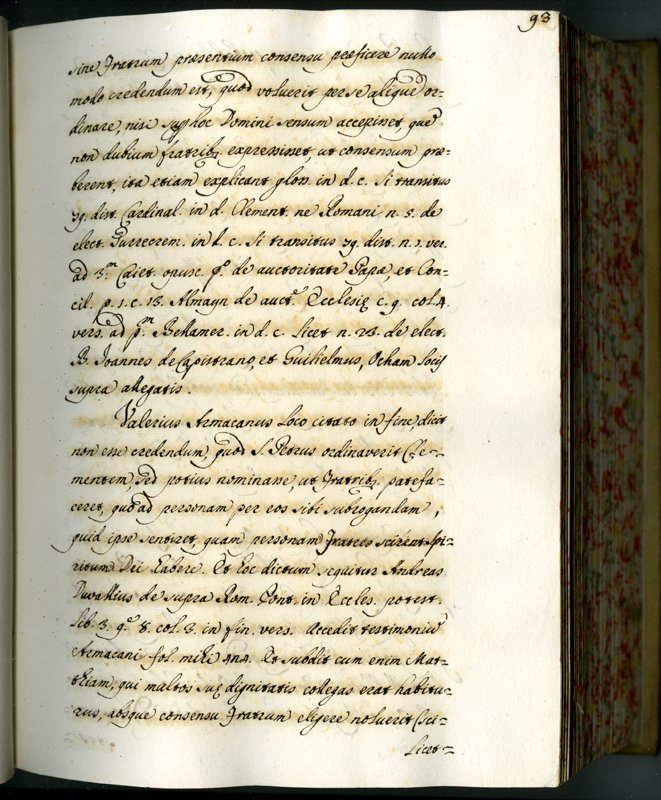 93
sine Fratrum præsentium consensu præficere nullo
modo credendum est, quod voluerit per se aliquem or-
dinare, nisi super hoc Domini sensum accepisset, quem
non dubium fratribus expressisset, ut consensum præ=
berent, ita etiam explicant gloss. in d. c. Si transitus
79. dist. Cardinal. in d. Clement. ne Romani n. 5. de
elect. Turrecrem. in d. c. Si transitus 79. dist. n. 1. ver.
ad 3.m Caiet. opusc. p.o de auctoritate Papæ, et Con-
cil. p. 1. c. 13. Almayn de auct.e Ecclesiæ c. 9. col. 4.
vers. ad p.m Bellamer. in d. c. Licet n. 23. de elect.
B. Joannes de Capistrano, et Guilielmus, Ocham Locis
supra allegatis.
Valerius Armacanus Loco citato in fine, dicit
non esse credendum, quod S. Petrus ordinaverit Cle-
mentem, sed potius nominasse, ut Fratribus patefa=
ceret, quoad personam per eos sibi subrogandam,
quid ipse sentiret, quam personam Fratres scirent Spi=
ritum Dei habere. Et hoc dictum sequitur Andreas
Duvallius de supra Rom. Pont. in Eccles. potest.
Lib. 3. q.o 8. col. 3. in fin. vers. Accedit testimonium
Armacani fol. mihi 474. Et subdit cum enim Mat=
thiam, qui multos suæ dignitatis collegas erat habitu=
rus, absque consensu Fratrum eligere noluerit (sci=
Licet=